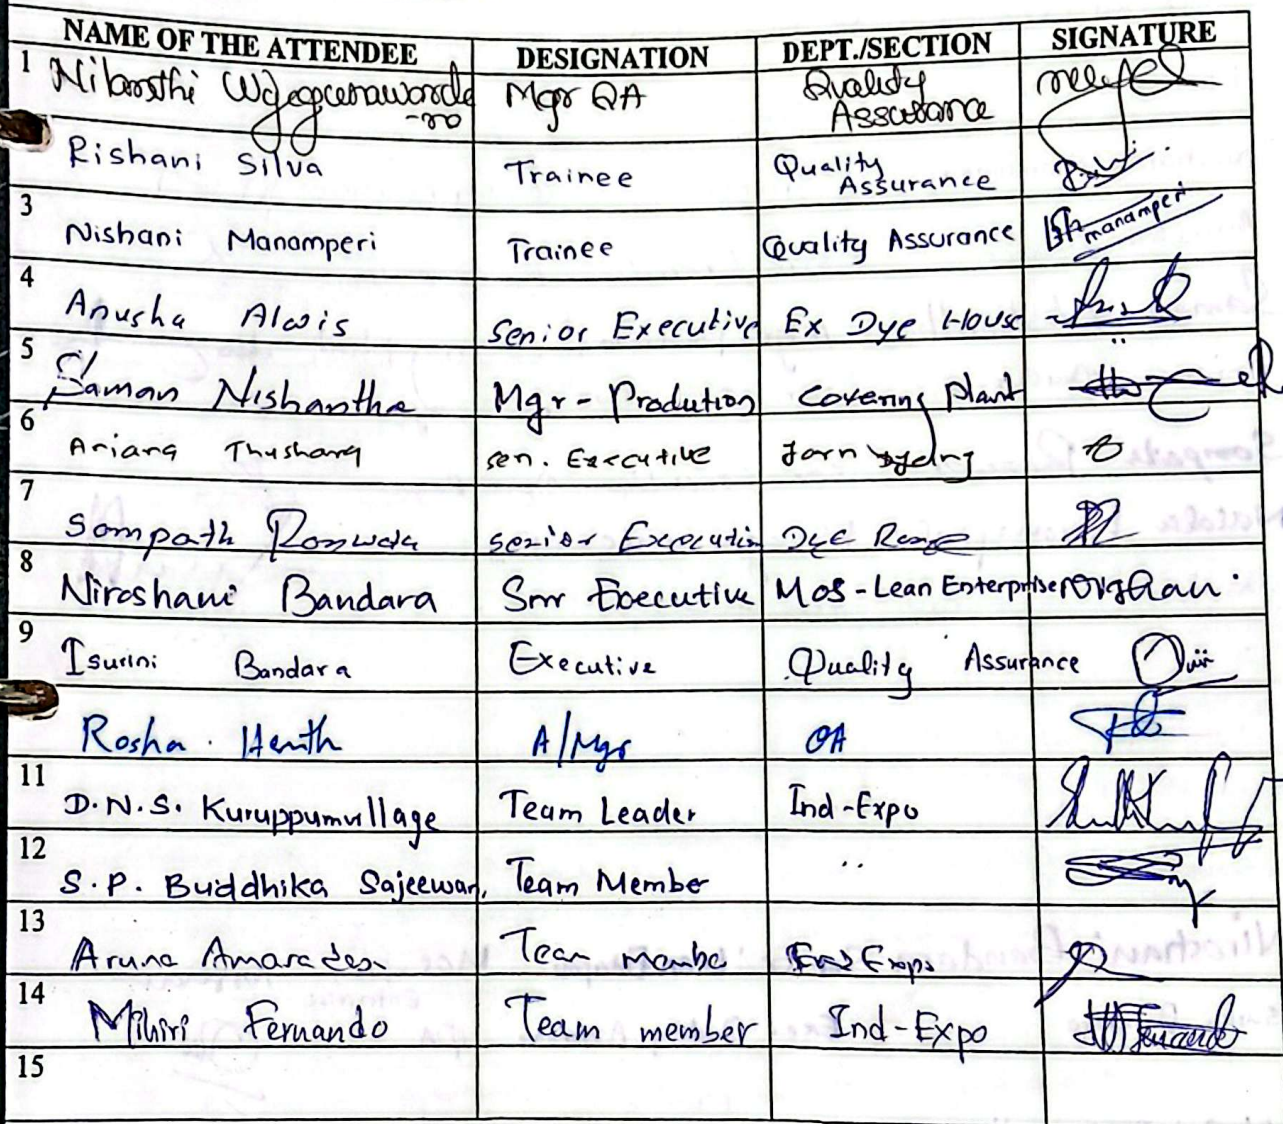 NAME OF THE ATTENDEE DESIGNATION DEPT./SECTION SIGNATURE
1 Mgr QA Quality
Assurance
Rishani Silva Trainee Quality
Assurance
3 Nishani Manamperi Trainee Quality Assurance manamperi
4 Anusha Alwis Senior Executive Ex Dye House
5 Saman Nishantha Mgr - Prodution Covering plant
6 Ariana Thushang sen. Executive
7 Sampath senior Dye Range
8 Niroshani Bandara Snr Executive Mos - Lean Enterprise
9 Isurini Bandara Executive Quality Assurance
Rosha Herath A/Mgr QA
11 D.N.S. Kuruppumullage Team Leader Ind-Expo
12 S.P. Buddhika Sajeewan, Team Member ..
13 Aruna Team membe
14 Mihiri Fernando Team member Ind-Expo
15